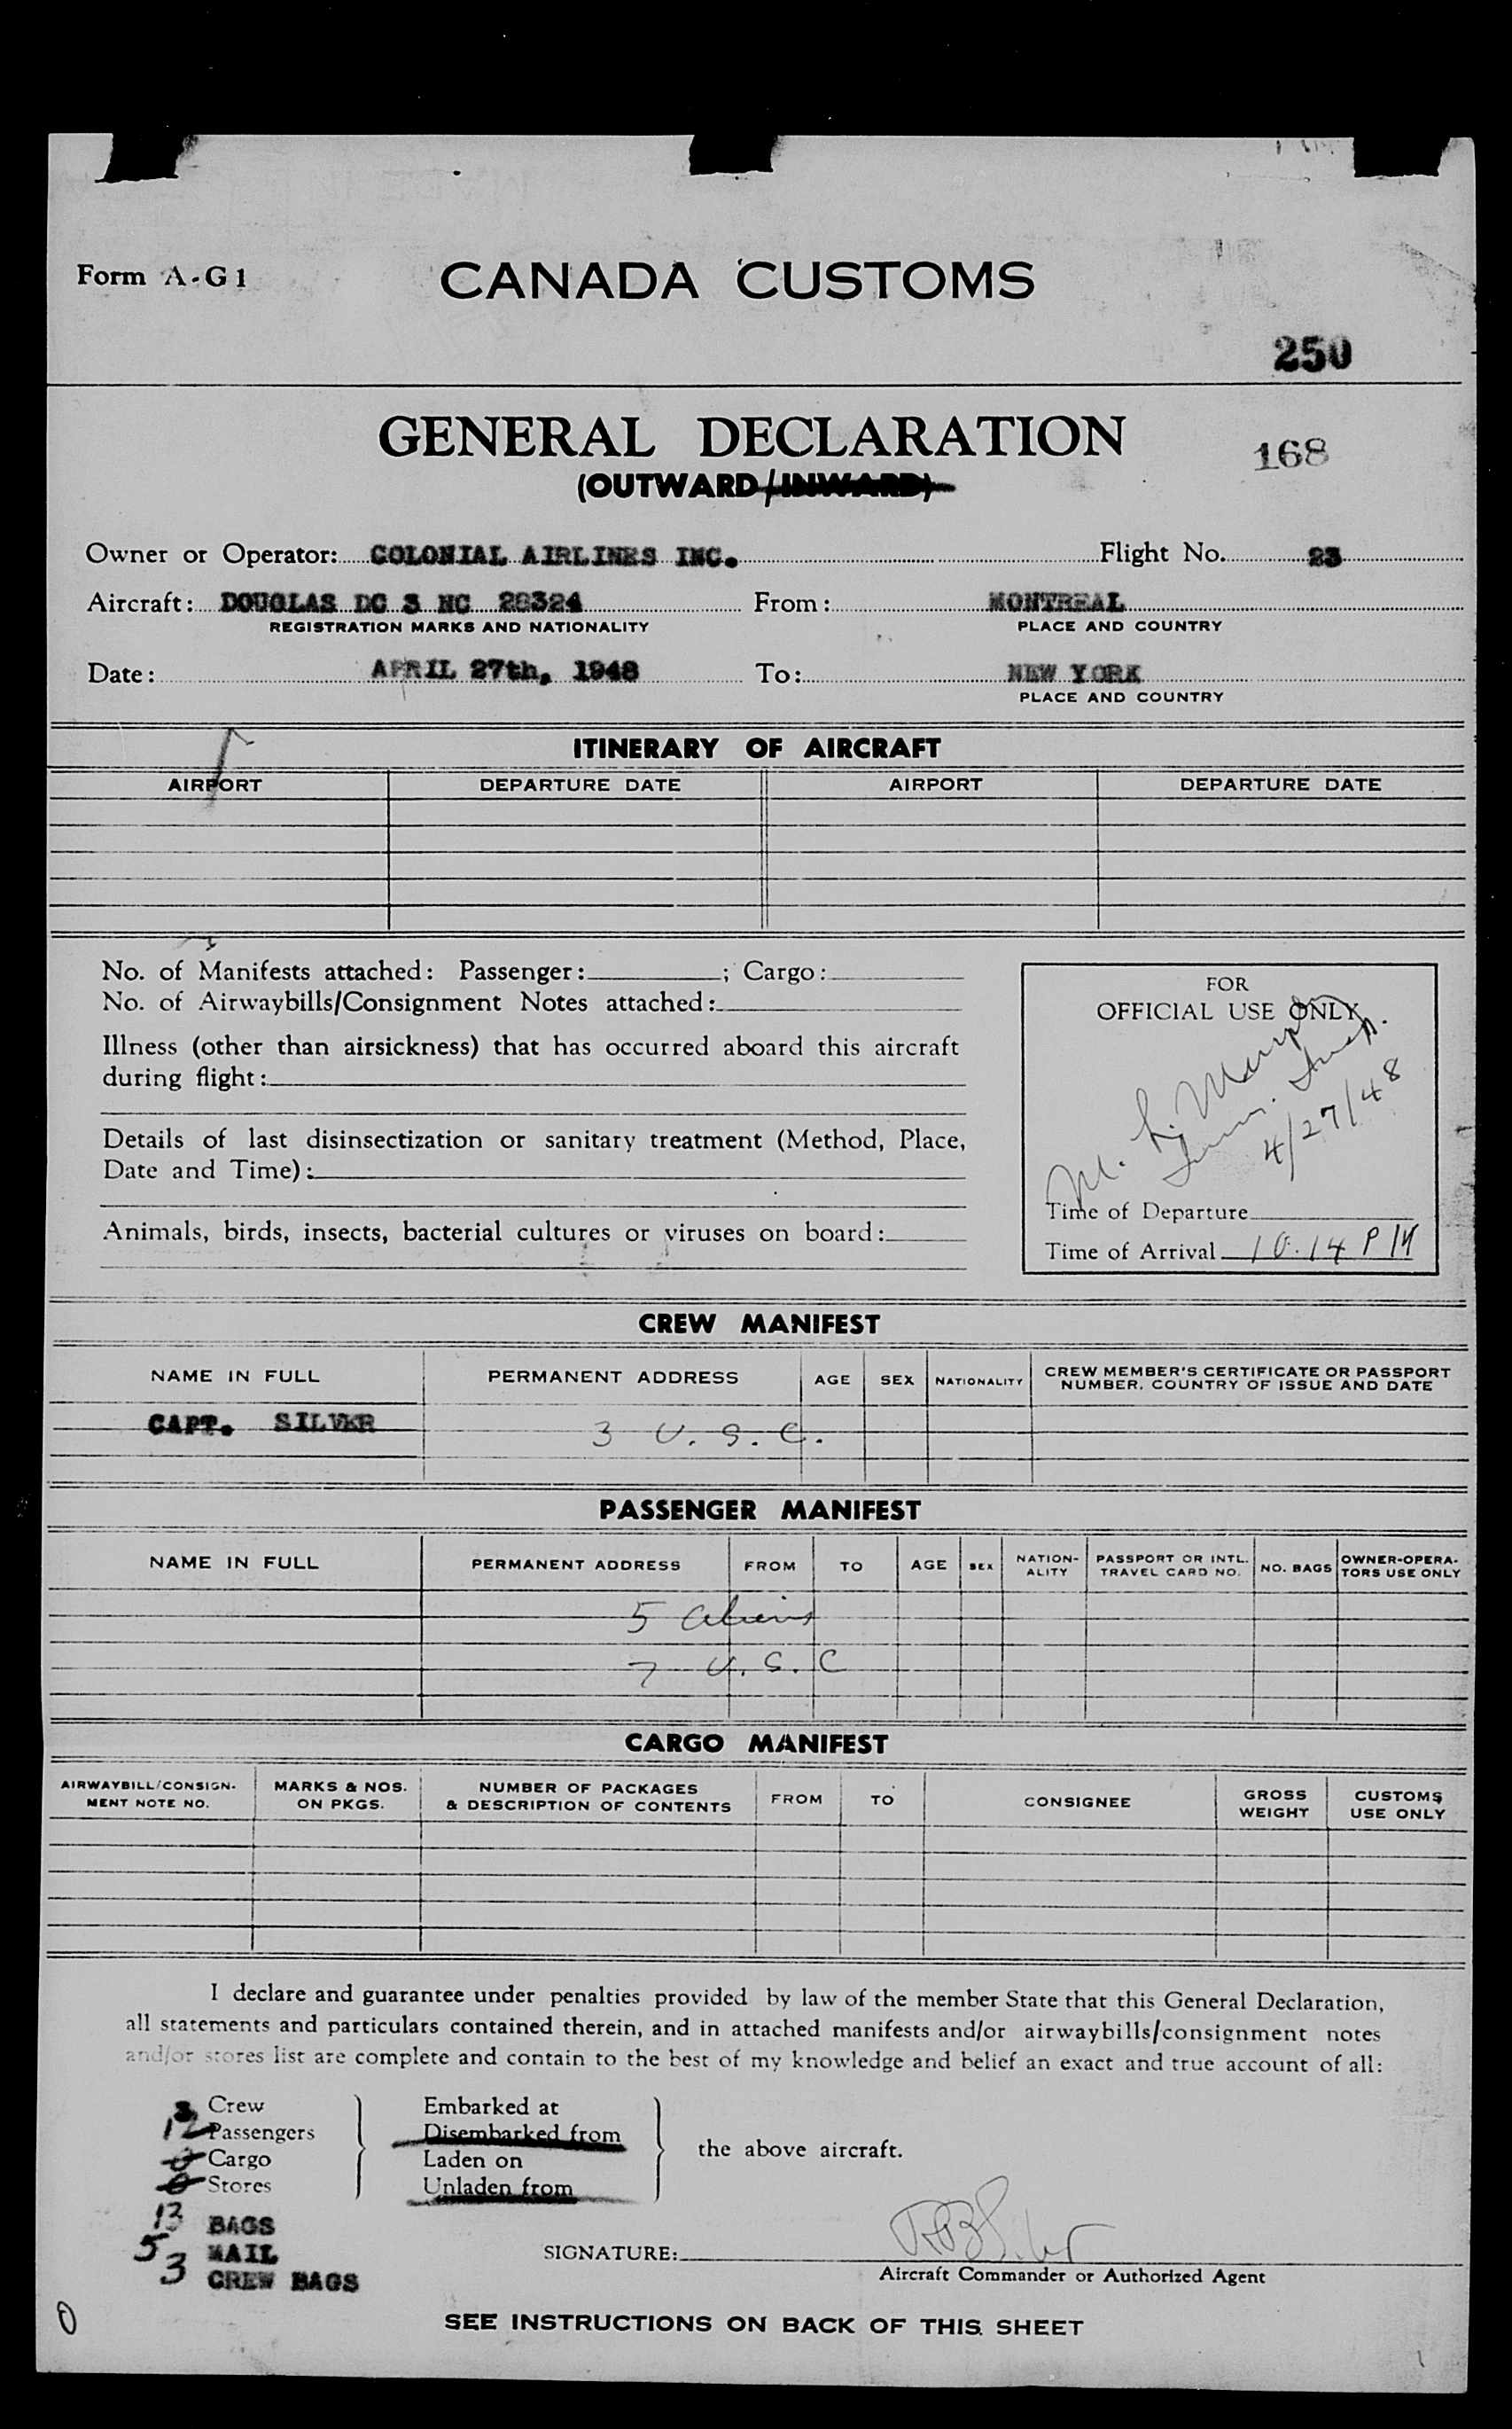 Form A-G1
CANADA CUSTOMS
250
GENERAL DECLARATION
168
(OUTWARD/INWARD)
Owner or Operator: COLONIAL AIRLINES INC. Flight No. 23
Aircraft: DOUGLAS DC 3 NC 28324 From: MONTREAL
REGISTRATION MARKS AND NATIONALITY PLACE AND COUNTRY
Date: APRIL 27th, 1948 To: NEW YORK
PLACE AND COUNTRY
ITINERARY OF AIRCRAFT
AIRPORT DEPARTURE DATE AIRPORT DEPARTURE DATE
No. of Manifests attached: Passenger: ; Cargo:
No. of Airwaybills/Consignment Notes attached:
Illness (other than airsickness) that has occurred aboard this aircraft
during flight:
Details of last disinsectization or sanitary treatment (Method, Place,
Date and Time):
Animals, birds, insects, bacterial cultures or viruses on board:
FOR
OFFICIAL USE ONLY
M. L.
Imm. Insp.
4/27/48
Time of Departure
Time of Arrival 10.14 PM
CREW MANIFEST
NAME IN FULL PERMANENT ADDRESS AGE SEX NATIONALITY CREW MEMBER'S CERTIFICATE OR PASSPORT
NUMBER, COUNTRY OF ISSUE AND DATE
CAPT. SILVER
3 U.S.C.
PASSENGER MANIFEST
NAME IN FULL PERMANENT ADDRESS FROM TO AGE SEX NATION-
ALITY PASSPORT OR INTL.
TRAVEL CARD NO. NO. BAGS OWNER-OPERA-
TORS USE ONLY
5 aliens
7 U.S.C
CARGO MANIFEST
AIRWAYBILL/CONSIGN-
MENT NOTE NO. MARKS & NOS.
ON PKGS. NUMBER OF PACKAGES
& DESCRIPTION OF CONTENTS FROM TO CONSIGNEE GROSS
WEIGHT CUSTOMS
USE ONLY
I declare and guarantee under penalties provided by law of the member State that this General Declaration,
all statements and particulars contained therein, and in attached manifests and/or airwaybills/consignment notes
and/or stores list are complete and contain to the best of my knowledge and belief an exact and true account of all:
3 Crew
12 Passengers
0 Cargo
0 Stores
Embarked at
Disembarked from
Laden on
Unladen from
the above aircraft.
13 BAGS
5 MAIL
3 CREW BAGS
SIGNATURE:
Aircraft Commander or Authorized Agent
0
SEE INSTRUCTIONS ON BACK OF THIS SHEET